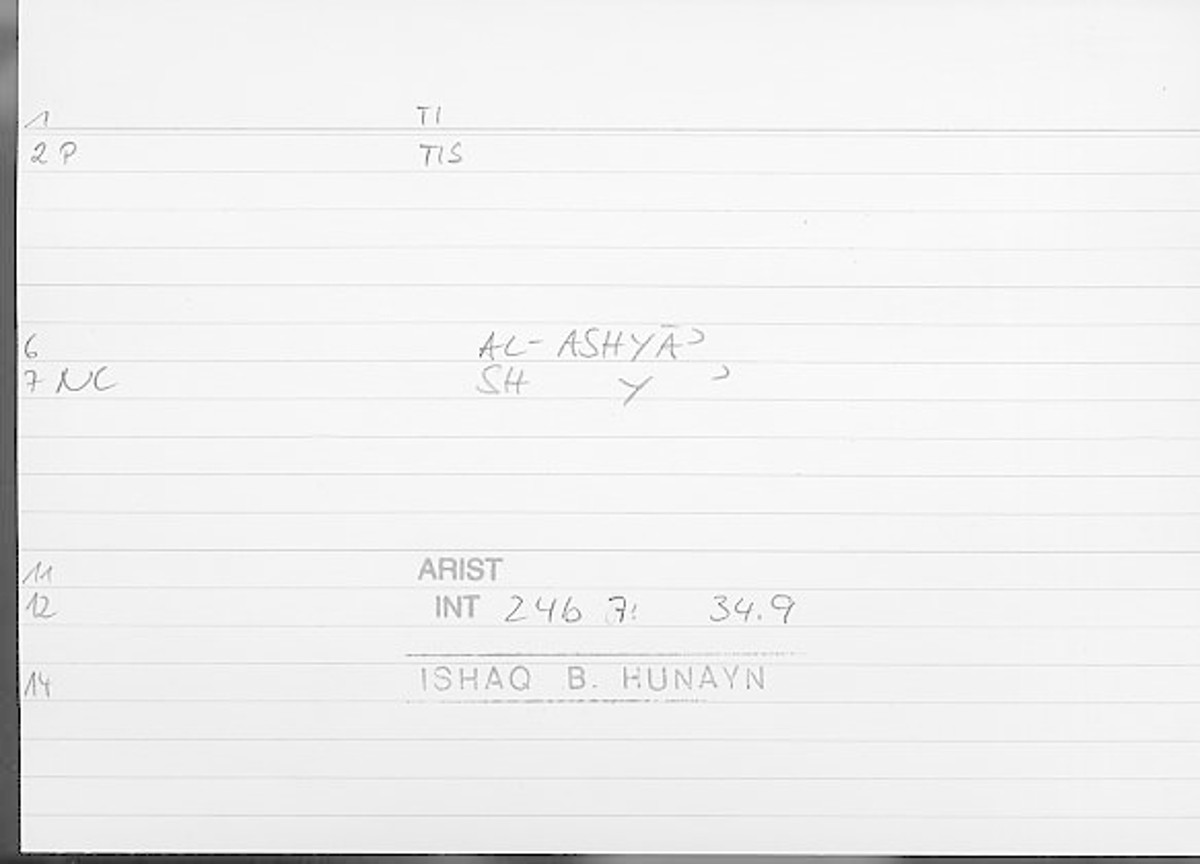 1 TI
2 P TIS
6 AL-ASHYĀʾ
7 NC SH Y ʾ
11 ARIST
12 INT 24b 7: 34.9
14 ISHAQ B. HUNAYN